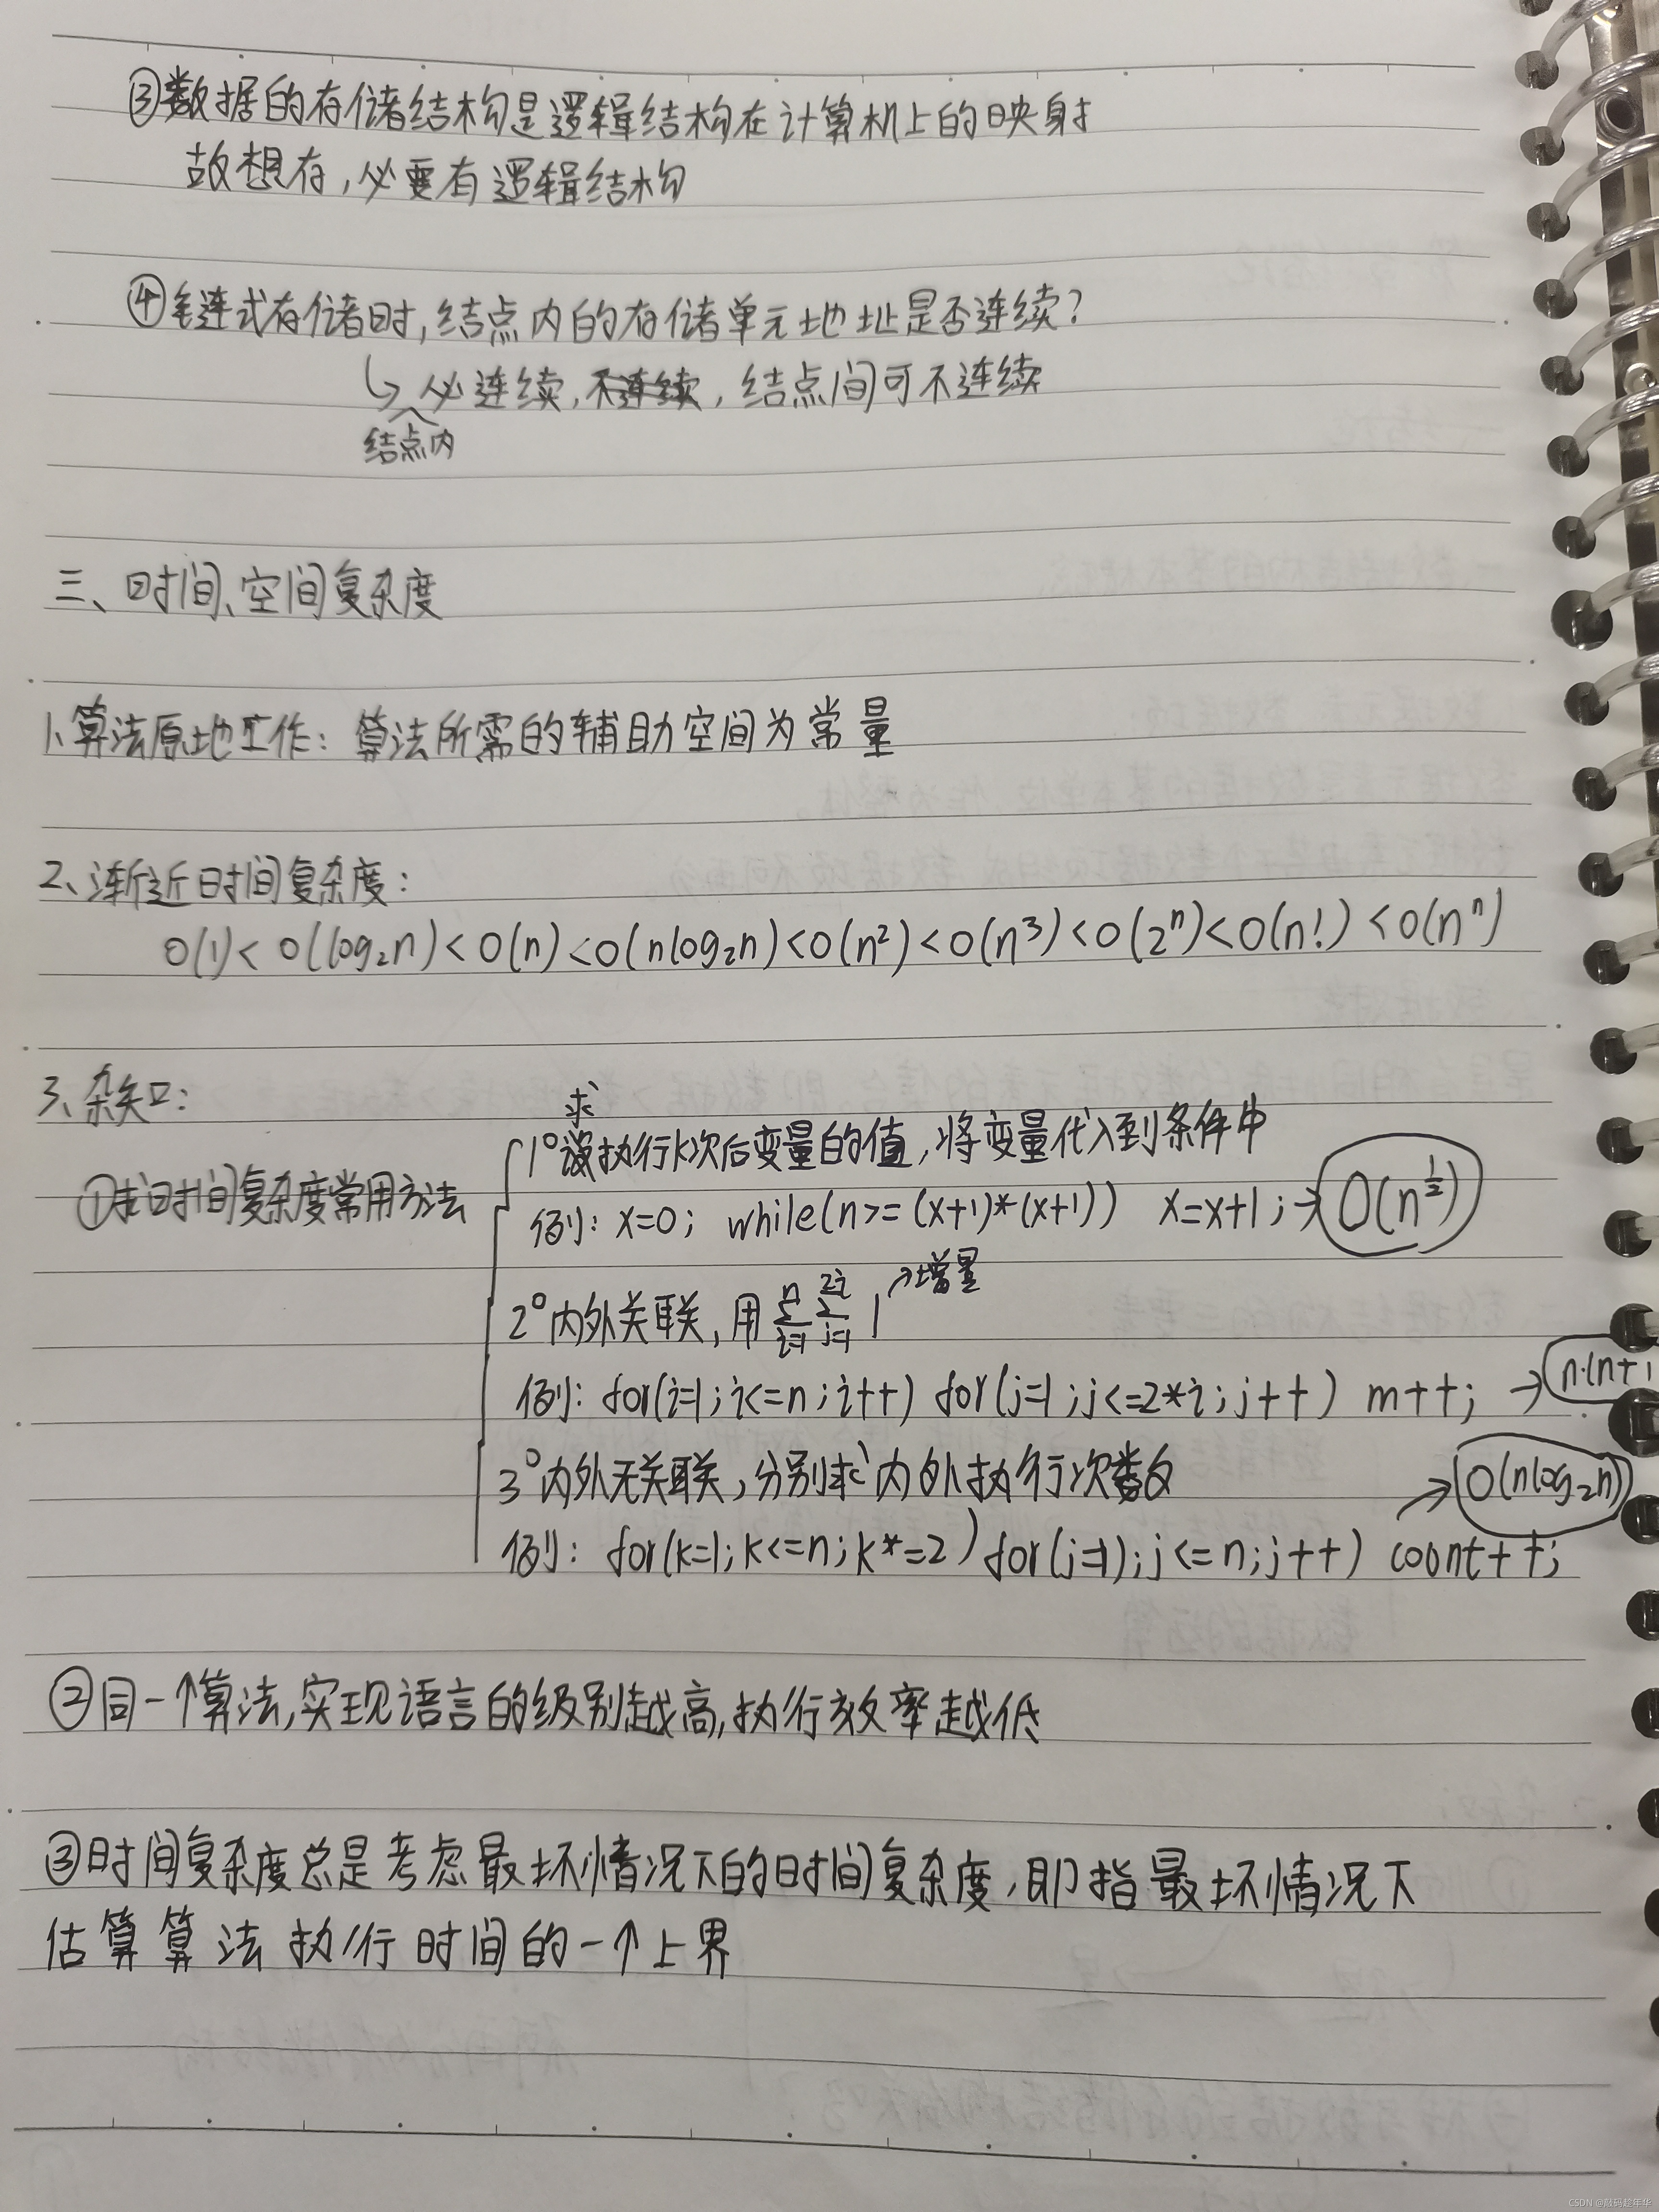 ③数据的存储结构是逻辑结构在计算机上的映射
故想存,必要有逻辑结构
④链式存储时,结点内的存储单元地址是否连续?
↳必连续,不连续,结点间可不连续
结点内
三、时间、空间复杂度
1、算法原地工作:算法所需的辅助空间为常量
2、渐近时间复杂度:
O(1)<O(log₂n)<O(n)<O(nlog₂n)<O(n²)<O(n³)<O(2ⁿ)<O(n!)<O(nⁿ)
3、杂知:
①求时间复杂度常用方法
求
1°设执行k次后变量的值,将变量代入到条件中
例:x=0; while(n>=(x+1)*(x+1)) x=x+1;→O(n^½)
2°内外关联,用 n∑i=1 2i∑j=1 1 ↗增量
例:for(i=1;i<=n;i++) for(j=1;j<=2*i;j++) m++; →n·(n+1
3°内外无关联,分别求内外执行次数
例:for(k=1;k<=n;k*=2) for(j=1);j<=n;j++) count++; →O(nlog₂n)
②同一个算法,实现语言的级别越高,执行效率越低
③时间复杂度总是考虑最坏情况下的时间复杂度,即指最坏情况下
估算算法执行时间的一个上界
CSDN @敲码趁年华